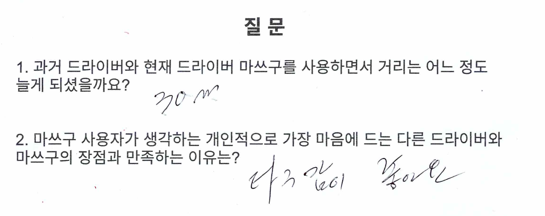 질 문
1. 과거 드라이버와 현재 드라이버 마쓰구를 사용하면서 거리는 어느 정도
늘게 되셨을까요?
30 m
2. 마쓰구 사용자가 생각하는 개인적으로 가장 마음에 드는 다른 드라이버와
마쓰구의 장점과 만족하는 이유는?
타구감이